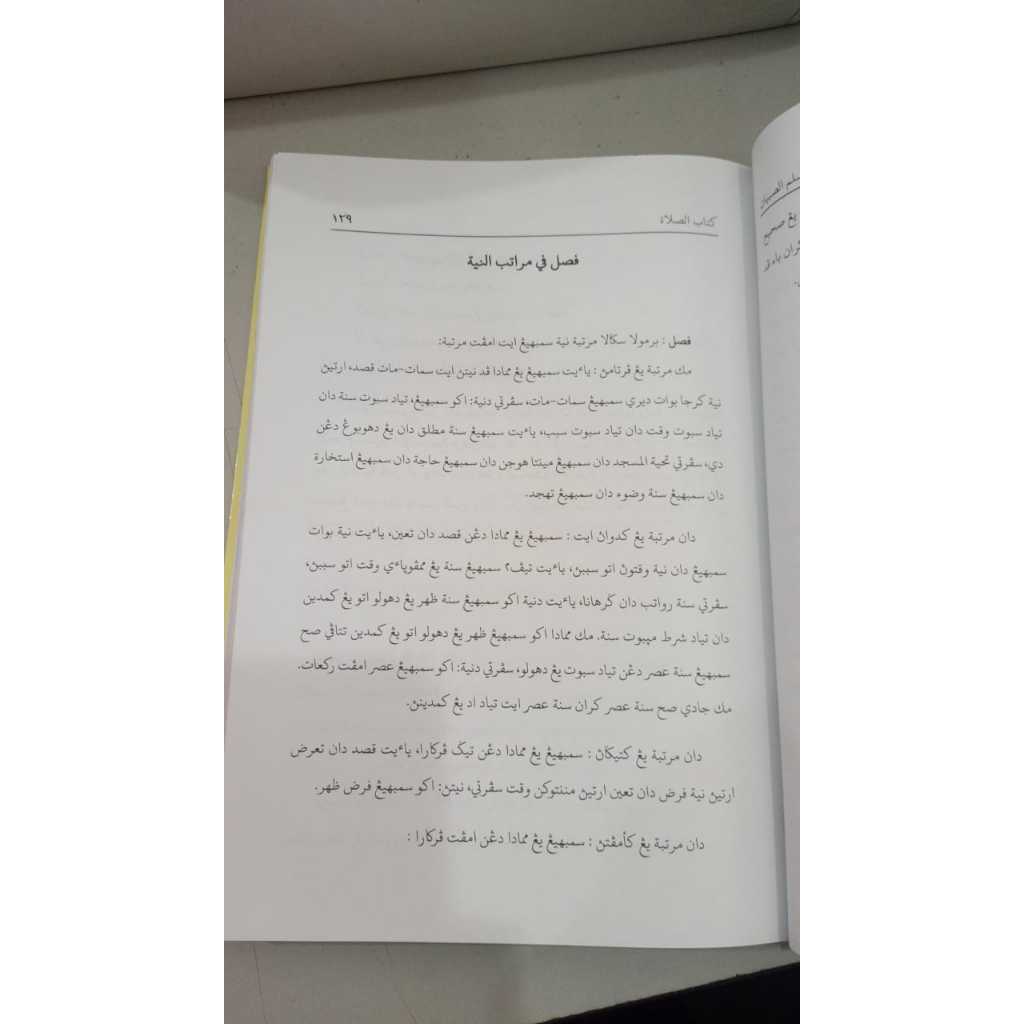 كتاب الصلاة ١٢٩
فصل في مراتب النية
فصل : برمولا سكالا مرتبة نية سمبهيڠ ايت امڤت مرتبة:
مك مرتبة يڠ ڤرتامڽ : ياءيت سمبهيڠ يڠ ممادا ڤد نيتڽ ايت سمات-مات قصد، ارتيڽ
نية كرجا بوات ديري سمبهيڠ سمات-مات، سڤرتي دنية: اكو سمبهيڠ، تياد سبوت سنة دان
تياد سبوت وقت دان تياد سبوت سبب، ياءيت سمبهيڠ سنة مطلق دان يڠ دهوبوڠ دڠن
دي، سڤرتي تحية المسجد دان سمبهيڠ مينتا هوجن دان سمبهيڠ حاجة دان سمبهيڠ استخارة
دان سمبهيڠ سنة وضوء دان سمبهيڠ تهجد.
دان مرتبة يڠ كدواڽ ايت : سمبهيڠ يڠ ممادا دڠن قصد دان تعين، ياءيت نية بوات
سمبهيڠ دان نية وقتوڽ اتو سببڽ، ياءيت تيڤ٢ سمبهيڠ سنة يڠ ممڤوياءي وقت اتو سببڽ،
سڤرتي سنة رواتب دان ڬرهانا، ياءيت دنية اكو سمبهيڠ سنة ظهر يڠ دهولو اتو يڠ كمدين
دان تياد شرط مڽبوت سنة. مك ممادا اكو سمبهيڠ ظهر يڠ دهولو اتو يڠ كمدين تتاڤي صح
سمبهيڠ سنة عصر دڠن تياد سبوت يڠ دهولو، سڤرتي دنية: اكو سمبهيڠ عصر امڤت ركعات.
مك جادي صح سنة عصر كران سنة عصر ايت تياد اد يڠ كمدينڽ.
دان مرتبة يڠ كتيڬاڽ : سمبهيڠ يڠ ممادا دڠن تيڬ ڤركارا، ياءيت قصد دان تعرض
ارتيڽ نية فرض دان تعين ارتيڽ مننتوكن وقت سڤرتي، نيتڽ: اكو سمبهيڠ فرض ظهر.
دان مرتبة يڠ كأمڤتڽ : سمبهيڠ يڠ ممادا دڠن امڤت ڤركارا :
الصبيان
يڠ صحيح
باء قد